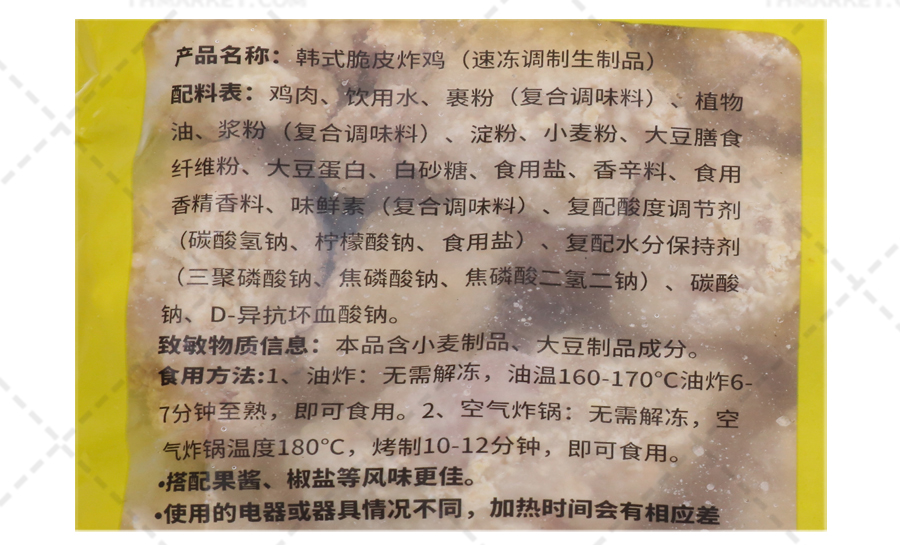 THMARKET.COM
产品名称：韩式脆皮炸鸡（速冻调制生制品）
配料表：鸡肉、饮用水、裹粉（复合调味料）、植物
油、浆粉（复合调味料）、淀粉、小麦粉、大豆膳食
纤维粉、大豆蛋白、白砂糖、食用盐、香辛料、食用
香精香料、味鲜素（复合调味料）、复配酸度调节剂
（碳酸氢钠、柠檬酸钠、食用盐）、复配水分保持剂
（三聚磷酸钠、焦磷酸钠、焦磷酸二氢二钠）、碳酸
钠、D-异抗坏血酸钠。
致敏物质信息：本品含小麦制品、大豆制品成分。
食用方法:1、油炸：无需解冻，油温160-170℃油炸6-
7分钟至熟，即可食用。2、空气炸锅：无需解冻，空
气炸锅温度180℃，烤制10-12分钟，即可食用。
•搭配果酱、椒盐等风味更佳。
•使用的电器或器具情况不同，加热时间会有相应差